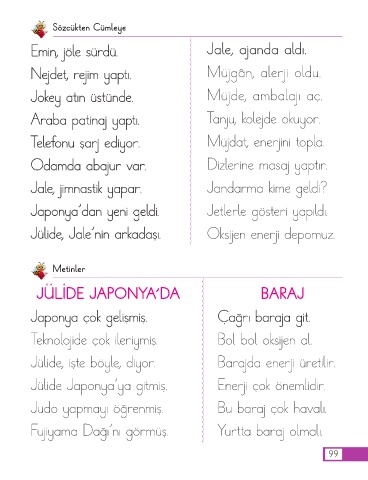 Sözcükten Cümleye
Emin, jöle sürdü.
Nejdet, rejim yaptı.
Jokey atın üstünde.
Araba patinaj yaptı.
Telefonu şarj ediyor.
Odamda abajur var.
Jale, jimnastik yapar.
Japonya'dan yeni geldi.
Jülide, Jale'nin arkadaşı.
Jale, ajanda aldı.
Müjgân, alerji oldu.
Müjde, ambalajı aç.
Tanju, kolejde okuyor.
Müjdat, enerjini topla.
Dizlerine masaj yaptır.
Jandarma kime geldi?
Jetlerle gösteri yapıldı.
Oksijen enerji depomuz.
Metinler
JÜLİDE JAPONYA'DA
Japonya çok gelişmiş.
Teknolojide çok ileriymiş.
Jülide, işte böyle, diyor.
Jülide Japonya'ya gitmiş.
Judo yapmayı öğrenmiş.
Fujiyama Dağı'nı görmüş.
BARAJ
Çağrı baraja git.
Bol bol oksijen al.
Barajda enerji üretilir.
Enerji çok önemlidir.
Bu baraj çok havalı.
Yurtta baraj olmalı.
99